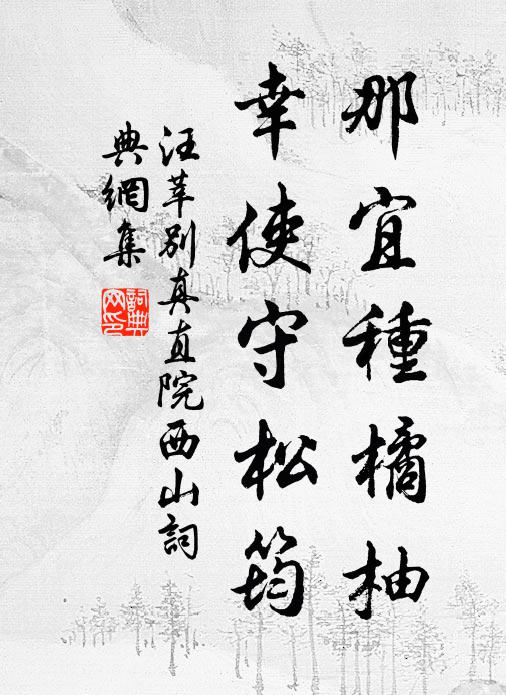 那宜種橘柚
幸使守松筠
汪莘别真直院西山詞
典網集
詞典网印